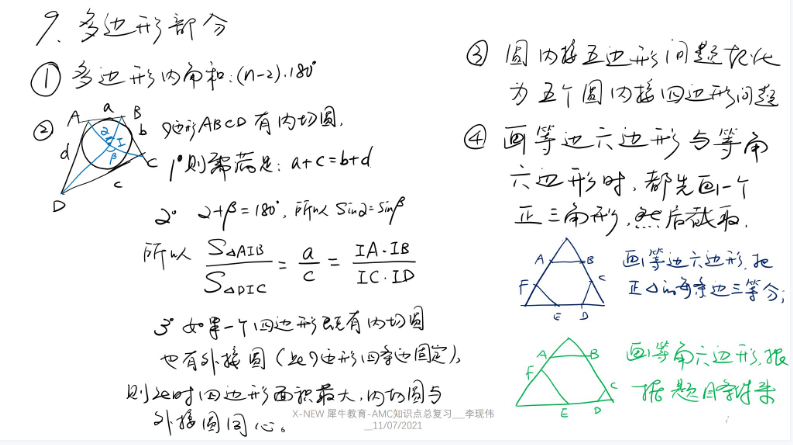 9、多边形部分
① 多边形内角和:(n-2)·180°
② A a B b C c D d α I β 四边形ABCD有内切圆,
1° 则需满足: a+c=b+d
2° α+β=180°, 所以 Sinα=Sinβ
所以 S△AIB / S△DIC = a/c = IA·IB / IC·ID
3° 如果一个四边形既有内切圆
也有外接圆(此四边形四条边固定),
则此时四边形面积最大,内切圆与
外接圆同心。
③ 圆内接五边形问题转化
为五个圆内接四边形问题
④ 画等边六边形与等角
六边形时,都先画一个
正三角形,然后截取.
A B C D E F
画等边六边形,把
正△的每条边三等分;
A B C D E F
画等角六边形,根
据题目条件来
X-NEW 犀牛教育-AMC知识点总复习__李现伟
__11/07/2021